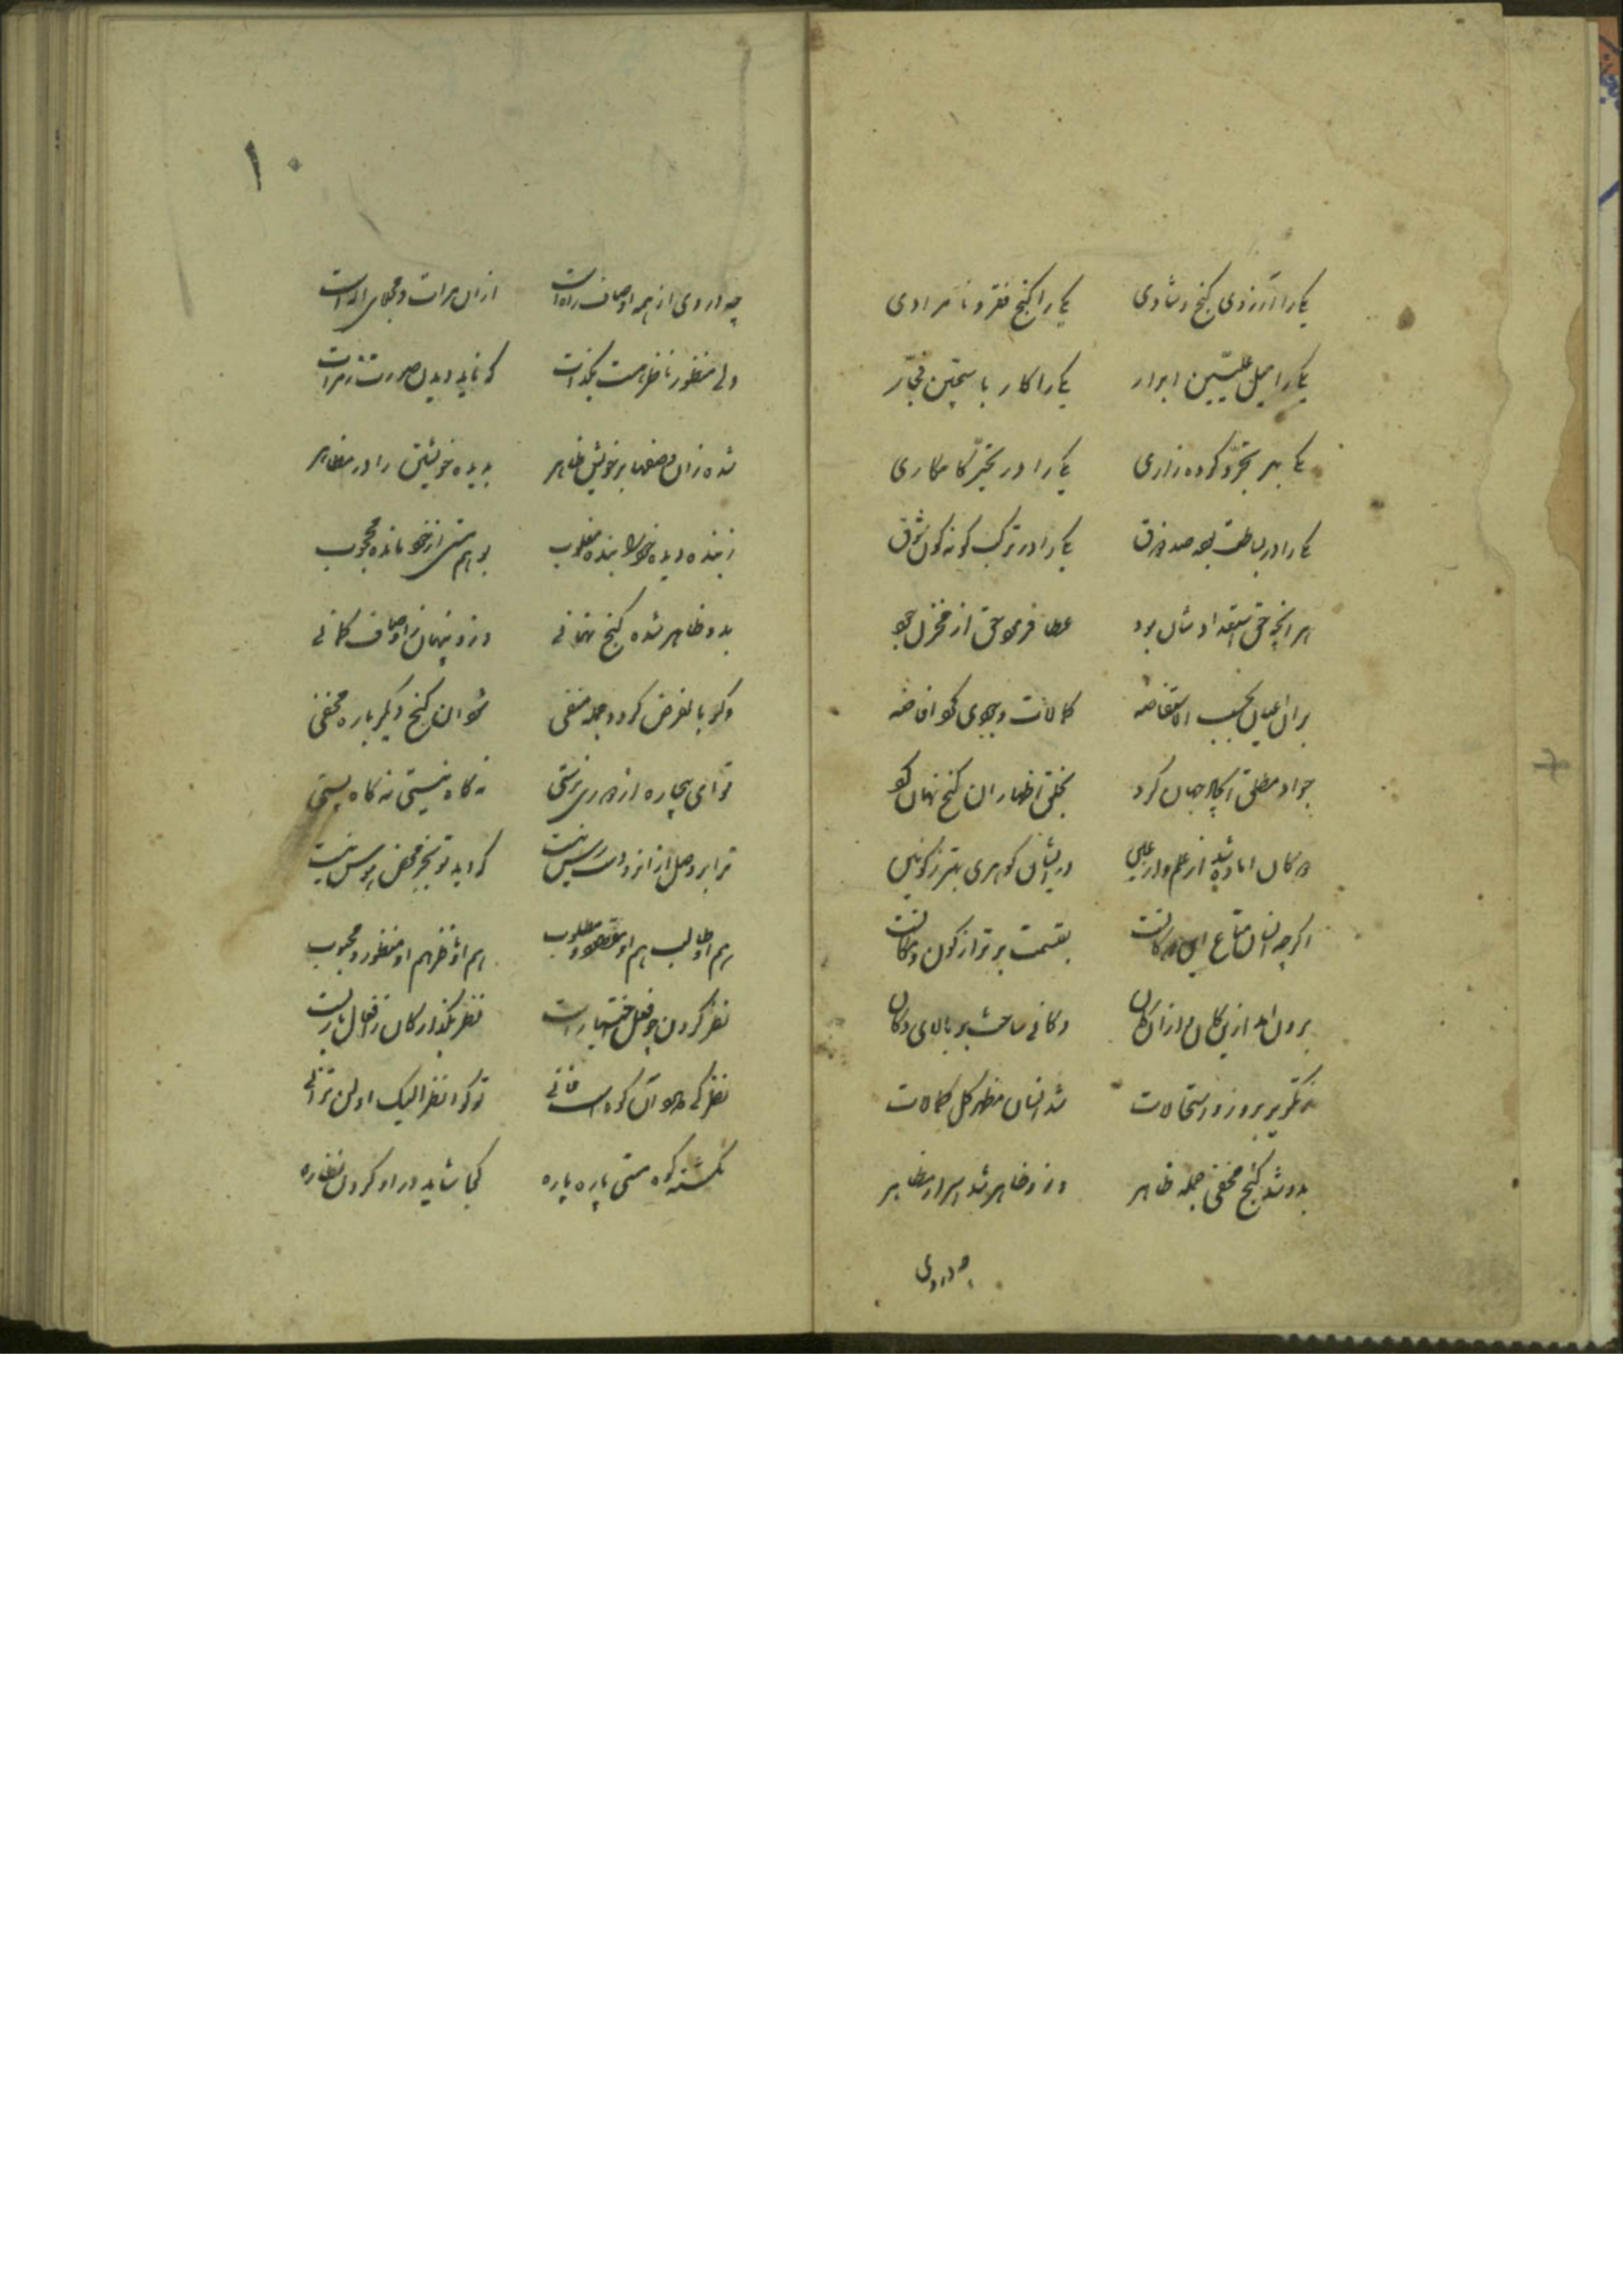 یکی را آرزوی گنج و شادی یکی را گنج فقر و نامرادی
یکی را میل علیین ابرار یکی را کار با سجین فجار
یکی بهر تجرد کرده زاری یکی را در تحیر کامکاری
یکی را در بساطت بود صد ذوق یکی را در ترکب گونه گون شوق
هر آنچه حق استعدادشان بود عطا فرمود حق از مخزن جود
بر آن اعیان بحسب الاستفاضه کمالات وجودی کرد افاضه
جواد مطلق ایجاد جهان کرد بخلق اظهار آن گنج نهان کرد
در ایشان گوهری بهتر ز کونین
اگر چه انسان متاع این دکانست بقسمت برتر از کون و مکانست
برون آمد ازین کان و از ان کان دکانی ساخت بر بالای دکان
شد انسان مظهر کل کمالات
بدو شد گنج مخفی جمله ظاهر وزو ظاهر شد اسرار مظاهر
چه در وی
۱۰
چه در وی از همه اوصاف ذاتست از ان مرات و مجلای
ولی منظور ناظر هست یکذات که ناید دیدن صورت ز مرات
شده زان وصفها بر خویش ظاهر بدیده خویشتن را در مظاهر
ز بنده دیده خود را بنده مغلوب بوهم هستی از خود مانده محجوب
بدو ظاهر شده گنج نهانی وزو پنهان اوصاف کمانی
وگر بالفرض گردد جمله منفی شود آن گنج دیگر باره مخفی
تو ای بیچاره از در نه گاه نیستی نه گاه هستی
ترا بر وصل او از دسترس نیست که اید تو بجز محض هوس نیست
هم او طالب هم او مقصود و مطلوب هم او ناظر هم او منظور و محبوب
نظر کردن چو فعل اختیارست نظر بگذار کان ز افعال یارست
نظر کی در خود آن که هست فانی تو گو انظر الیک او لن ترانی
نگشته کوه هستی پاره پاره کجا شاید در او کردن نظاره